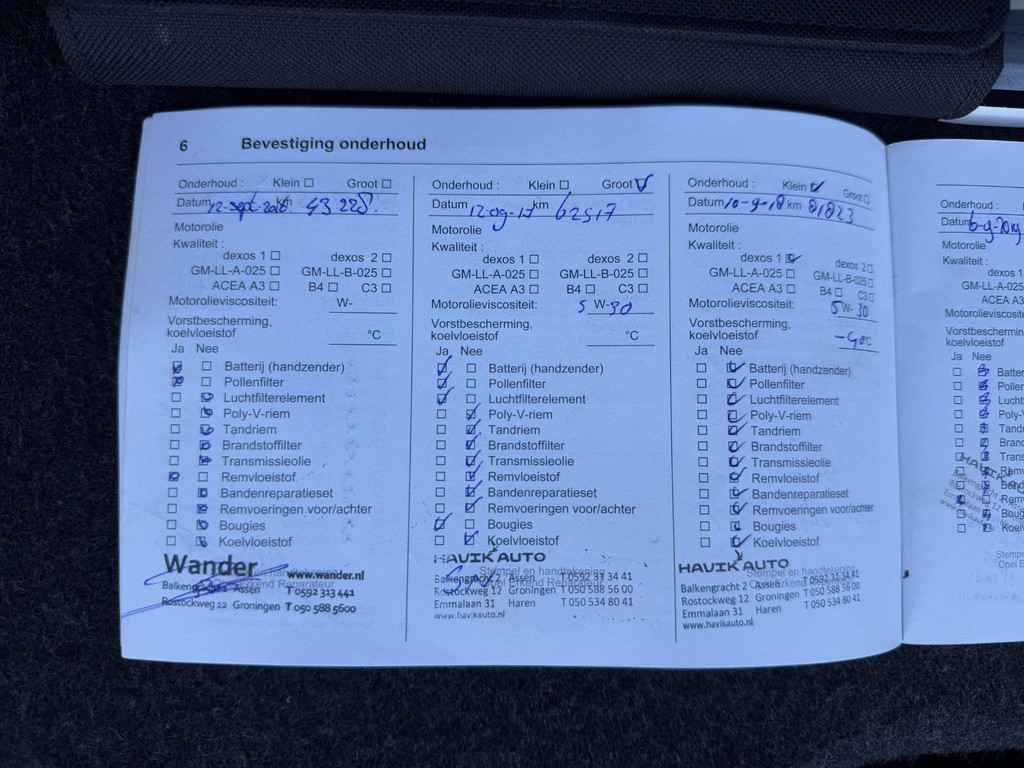 6 Bevestiging onderhoud
Onderhoud : Klein Groot
Datum 12-sept-2016 km 43 228.
Motorolie
Kwaliteit :
dexos 1 dexos 2
GM-LL-A-025 GM-LL-B-025
ACEA A3 B4 C3
Motorolieviscositeit: W-
Vorstbescherming,
koelvloeistof °C
Ja Nee
Batterij (handzender)
Pollenfilter
Luchtfilterelement
Poly-V-riem
Tandriem
Brandstoffilter
Transmissieolie
Remvloeistof
Bandenreparatieset
Remvoeringen voor/achter
Bougies
Koelvloeistof
Wander
www.wander.nl
Assen T 0592 313 441
Rostockweg 22 Groningen T 050 588 5600
Onderhoud : Klein Groot
Datum 12-09-17 km 62517
Motorolie
Kwaliteit :
dexos 1 dexos 2
GM-LL-A-025 GM-LL-B-025
ACEA A3 B4 C3
Motorolieviscositeit: 5 W-30
Vorstbescherming,
koelvloeistof °C
Ja Nee
Batterij (handzender)
Pollenfilter
Luchtfilterelement
Poly-V-riem
Tandriem
Brandstoffilter
Transmissieolie
Remvloeistof
Bandenreparatieset
Remvoeringen voor/achter
Bougies
Koelvloeistof
HAVIK AUTO
Stempel en handtekening
Balkengracht 2 Assen T 0592 31 34 41
Opel Erkend Reparateur
Rostockweg 12 Groningen T 050 588 56 00
Emmalaan 31 Haren T 050 534 80 41
www.havikauto.nl
Onderhoud : Klein Groot
Datum 10-9-18 km 81823
Motorolie
Kwaliteit :
dexos 1 dexos 2
GM-LL-A-025 GM-LL-B-025
ACEA A3 B4 C3
Motorolieviscositeit: 5 W-30
Vorstbescherming,
koelvloeistof -40°C
Ja Nee
Batterij (handzender)
Pollenfilter
Luchtfilterelement
Poly-V-riem
Tandriem
Brandstoffilter
Transmissieolie
Remvloeistof
Bandenreparatieset
Remvoeringen voor/achter
Bougies
Koelvloeistof
HAVIK AUTO
Stempel en handtekening
Balkengracht 2 Assen T 0592 31 34 41
Rostockweg 12 Groningen T 050 588 56 00
Emmalaan 31 Haren T 050 534 80 41
www.havikauto.nl
Onderhoud :
Datum 6-9-2019
Motorolie
Kwaliteit :
dexos 1
GM-LL-A-025
ACEA A3
Motorolieviscosite
Vorstbescherming
koelvloeistof
Ja Nee
Batter
Pollen
Lucht
Poly-
Tand
Brand
Tran
Rem
Ban
Rem
Boug
Koel
Stempe
Opel E